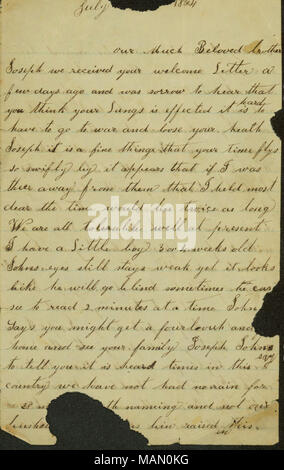 July 1864
our Much Beloved brother
Joseph we received your welcome Letter a
few days ago and was sorrow to hear that
you think your Lungs is effected it is hard
to have to go to war and loose your health
Joseph it is a fine things that your time flys
so swiftly by it appears that if I was
away from them that I held most
dear the time would be twice as long
We are all tolerable well at present
I have a Little boy 3 or 4 weeks old
Johns eyes still stays weak yet it looks
like he will go blind sometimes he can
see to read 2 minutes at a time John
Says you might get a fourlough and
home and see your family Joseph Johns says
to tell you it is heard times in this
country we have not had no rain for
naming and not our
him raised in this
alamy
Image ID: MAN0KG
www.alamy.com